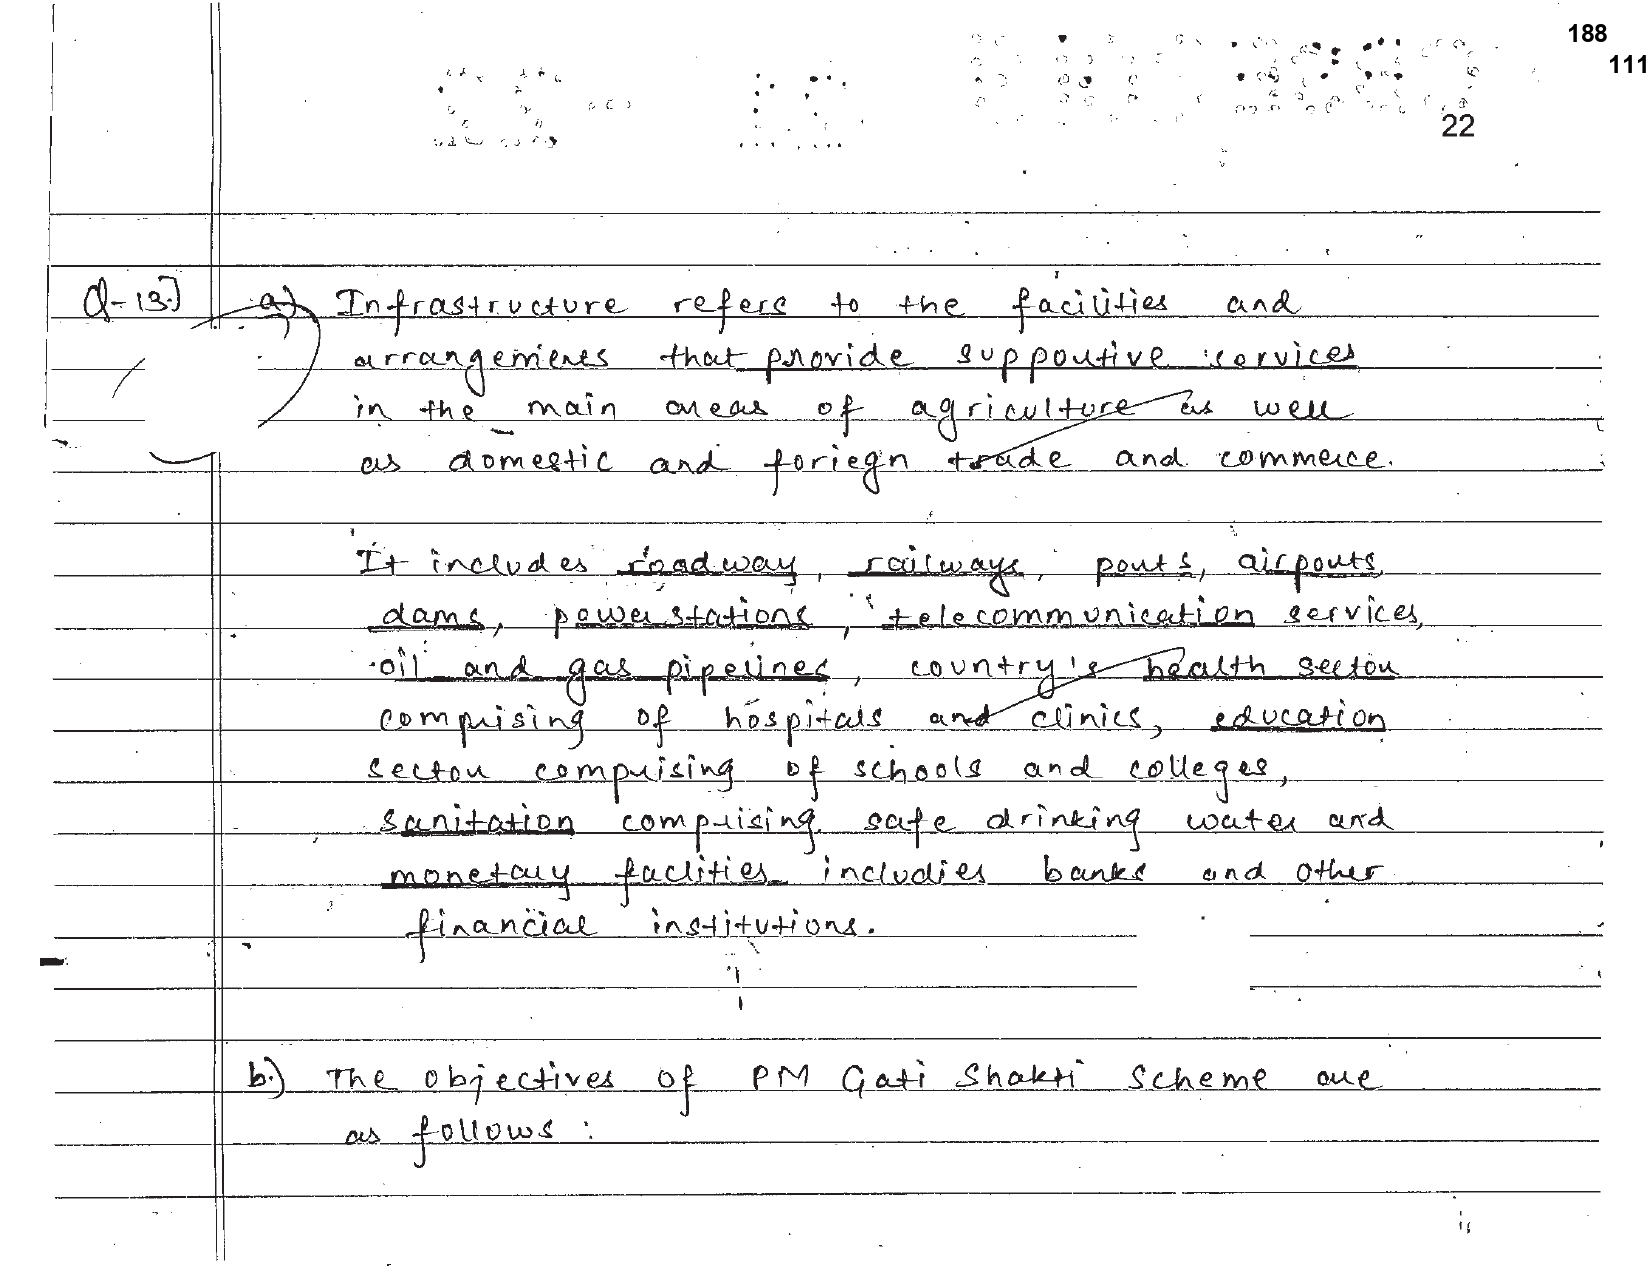 188
111
22
Q-13.] a) Infrastructure refers to the facilities and
arrangements that provide supportive services
in the main areas of agriculture as well
as domestic and foriegn trade and commerce.
It includes roadway, railways, ports, airports,
dams, powerstations, telecommunication services,
oil and gas pipelines, country's health sector
comprising of hospitals and clinics, education
sector comprising of schools and colleges,
sanitation comprising safe drinking water and
monetary faclities includies banks and other
financial institutions.
b.) The objectives of PM Gati Shakti Scheme are
as follows :